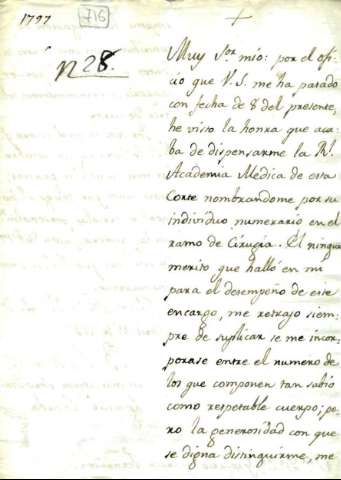 1797
716
N 28.
Muy S.or mio: por el ofi-
cio que V. S. me ha pasado
con fecha de 8 del presente,
he visto la honra que aca-
ba de dispensarme la R.l
Academia Medica de esta
Corte nombrandome por su
individuo numerario en el
ramo de Cirugia. El ningun
merito que hallo en mi
para el desempeño de este
encargo, me retrajo siem-
pre de suplicar se me incor-
porase entre el numero de
los que componen tan sabio
como respetable cuerpo; pe-
ro la generosidad con que
se digna distinguirme, me